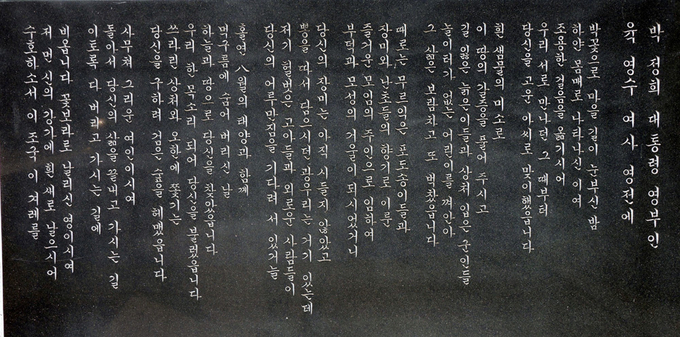 박 정희 대통령 영부인
육 영수 여사 영전에
박꽃으로 마을 길이 눈부신 밤
하얀 몸매로 나타나신 이여
조용한 걸음을 옮기시어
우리 서로 만나던 그 때부터
당신을 고운 아씨로 맞이했읍니다
흰 샘물의 미소로
이 땅의 갈증을 풀어 주시고
길 잃은 젊은이들과 상처 입은 군인들
놀이터가 없는 어린이를 껴안아
그 삶은 보람차고 또 벅찼읍니다
때로는 무르익은 포도송이들과
장미와 난초들의 향기로 이룬
즐거운 모임의 주인으로 임하여
부덕과 모성의 거울이 되시었거니
당신의 장미는 아직 시들지 않았고
뽕을 따서 담으시던 광우리는 거기 있는데
저기 헐벗은 고아들과 외로운 사람들이
당신의 어루만짐을 기다려 서 있거늘
홀연 八월의 태양과 함께
먹구름에 숨어 버리신 날
하늘과 땅으로 당신을 찾았읍니다
우리 한목소리 되어 당신을 불렀읍니다
쓰라린 상처와 오한에 쫓기는
당신을 구하려 검은 숲을 헤맸읍니다
사무쳐 그리운 여인이시여
돌아서 당신의 삶을 끝내고 가시는 길
이토록 다 버리고 가시는 길에
비옵니다 꽃보라로 날리신 영이시여
저 먼 신의 강가에 흰 새로 날으시어
수호하소서 이 조국 이 겨레를